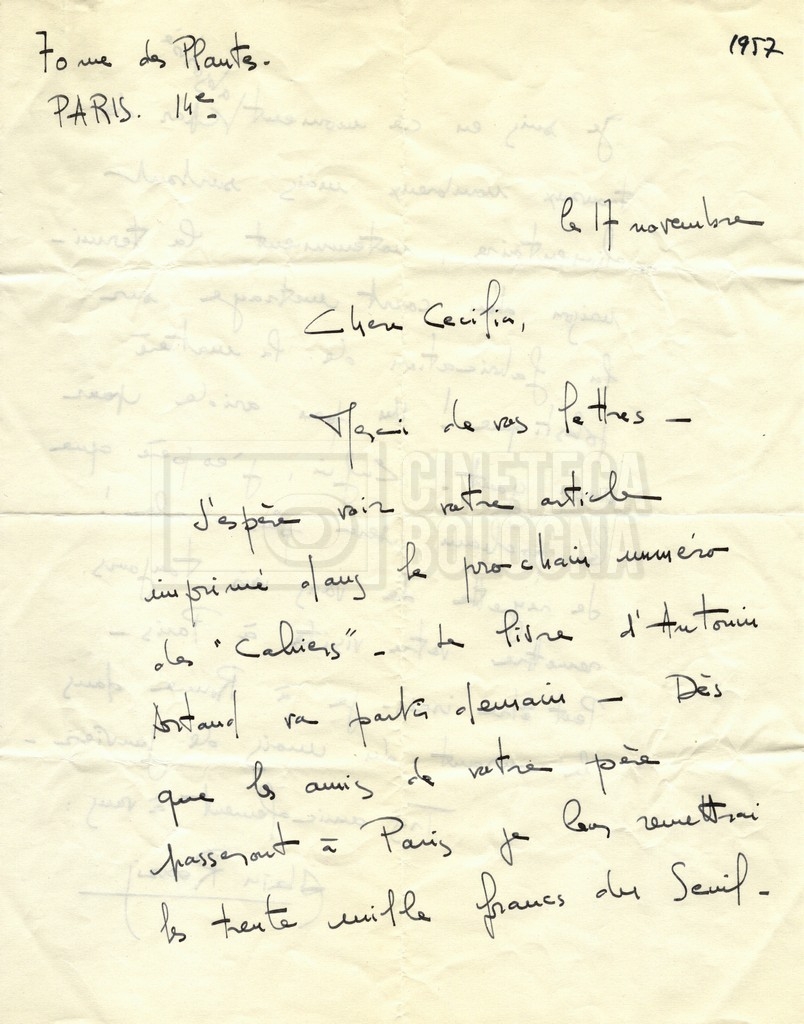 70 rue des Plantes.
1957
PARIS. 14e
le 17 novembre
Chère Cecilia,
Merci de vos lettres —
J'espère voir votre article
CINETECA
BOLOGNA
imprimé dans le prochain numéro
des "Cahiers" — Le livre d'Antonin
Artaud va partir demain — Dès
que les amis de votre père
passeront à Paris je leur remettrai
les trente mille francs du Seuil —